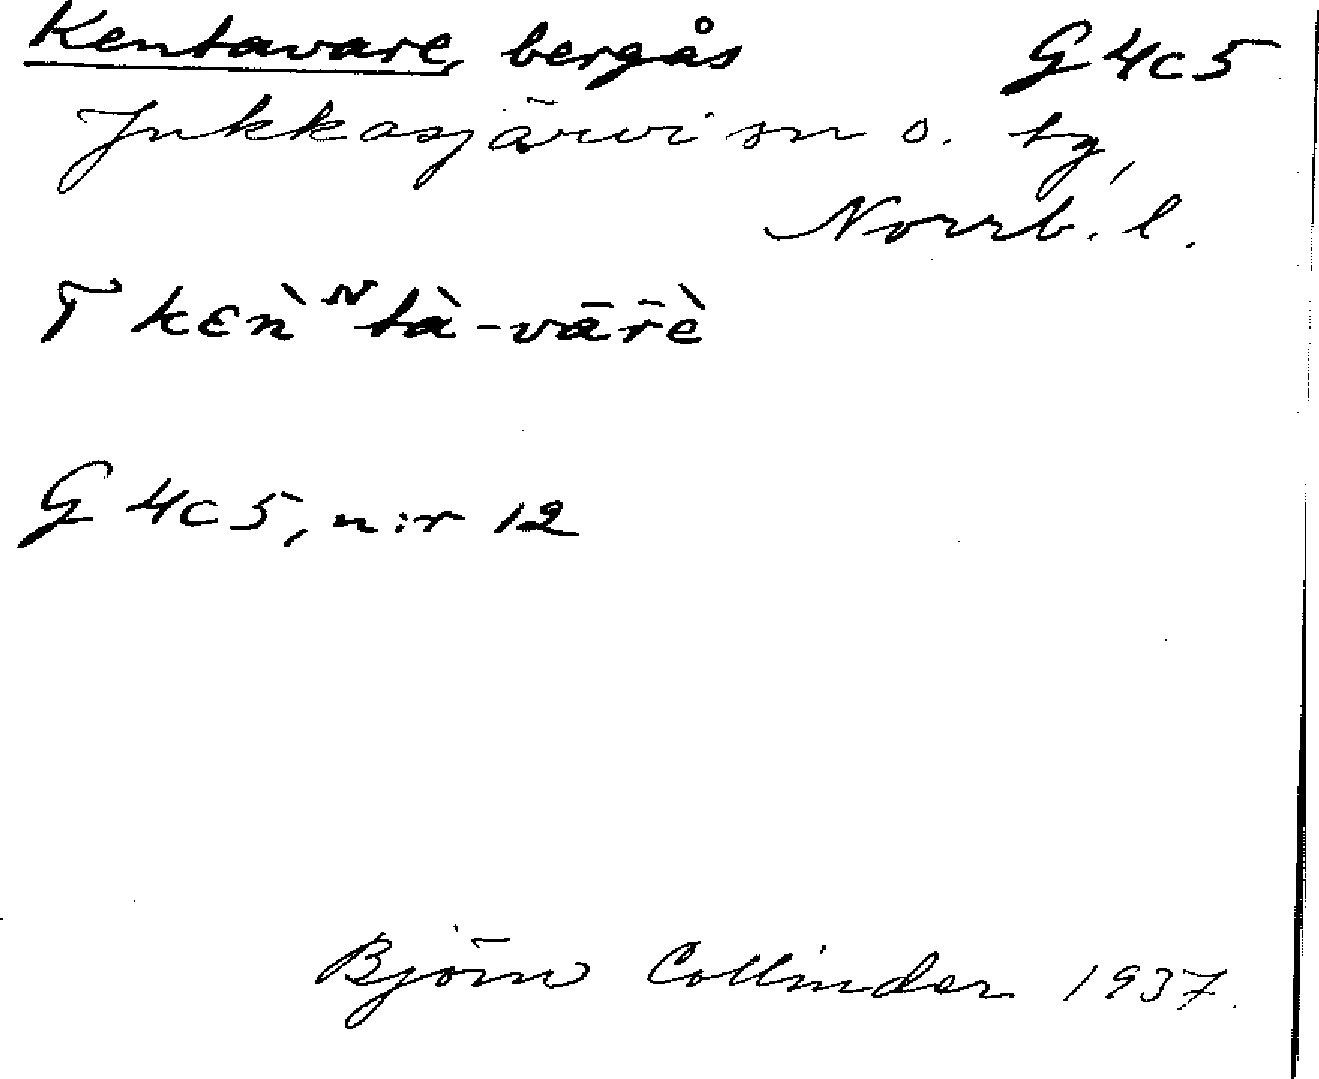 Kentavare, bergås G 4c5
Jukkasjärvi sn o. tg,
Norrb. l.
T kɛǹᴺtà-vārè
G 4c5, n:r 12
Björn Collinder 1937.